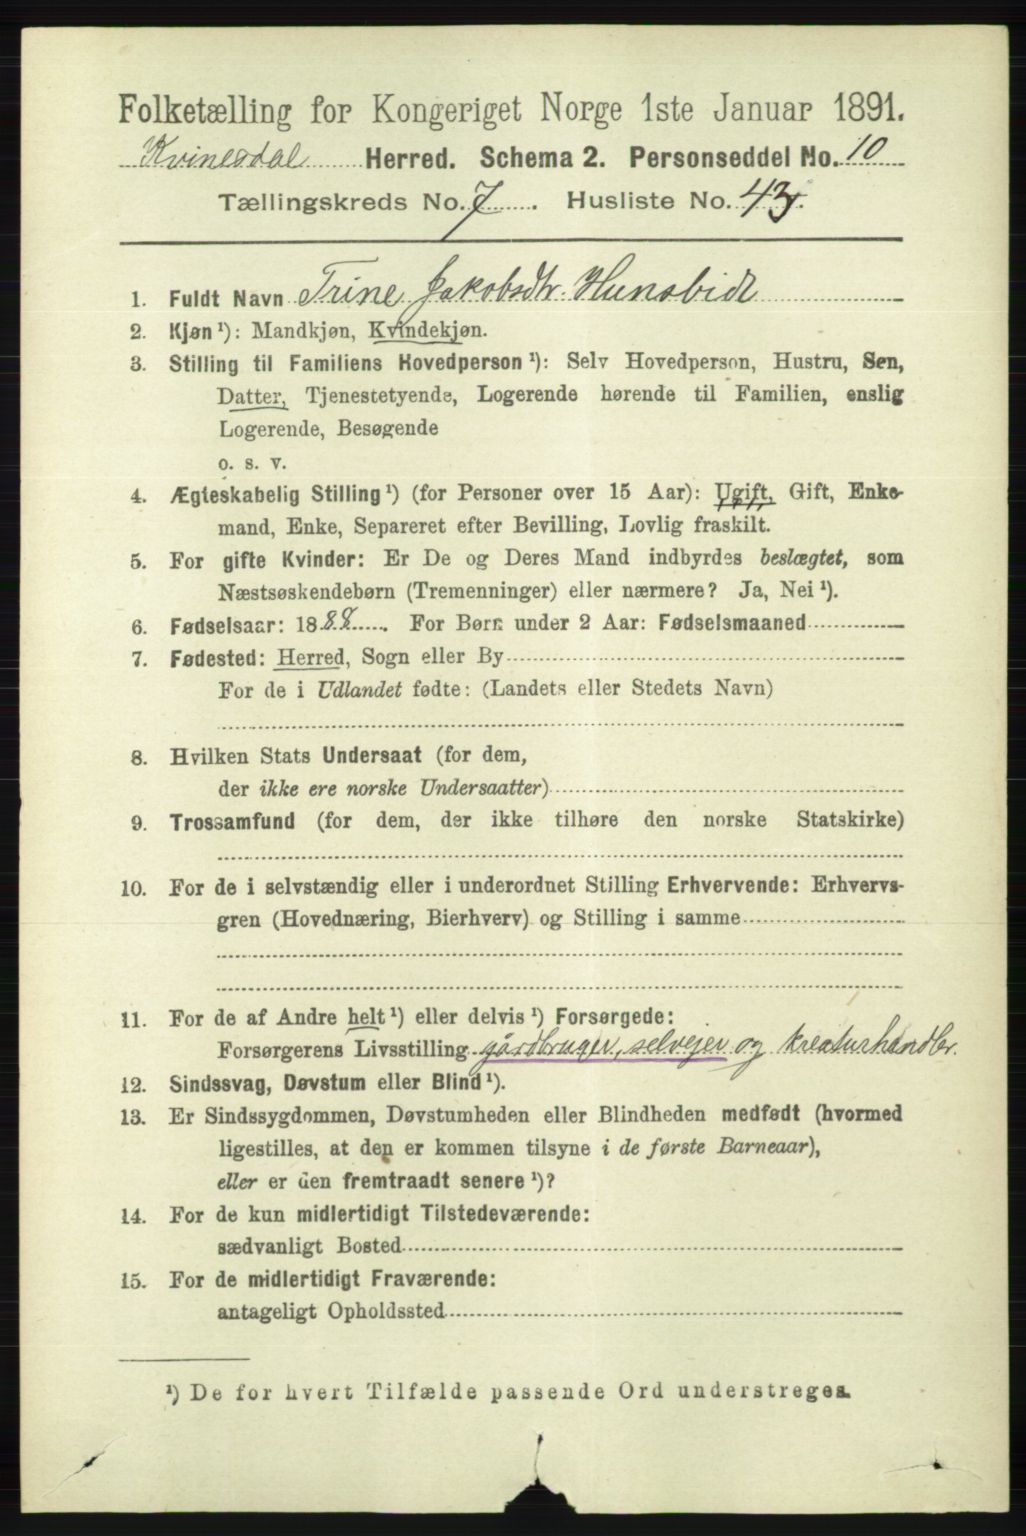 Folketælling for Kongeriget Norge 1ste Januar 1891.
Kvinesdal Herred. Schema 2. Personseddel No. 10
Tællingskreds No. 7. Husliste No. 43.
1. Fuldt Navn Trine Jakobsdtr. Hunsbidt
2. Kjøn¹): Mandkjøn, Kvindekjøn.
3. Stilling til Familiens Hovedperson¹): Selv Hovedperson, Hustru, Søn,
Datter, Tjenestetyende, Logerende hørende til Familien, enslig
Logerende, Besøgende
o. s. v.
4. Ægteskabelig Stilling¹) (for Personer over 15 Aar): Ugift, Gift, Enke-
mand, Enke, Separeret efter Bevilling, Lovlig fraskilt.
5. For gifte Kvinder: Er De og Deres Mand indbyrdes beslægtet, som
Næstsøskendebørn (Tremenninger) eller nærmere? Ja, Nei¹).
6. Fødselsaar: 1888. For Børn under 2 Aar: Fødselsmaaned
7. Fødested: Herred, Sogn eller By
For de i Udlandet fødte: (Landets eller Stedets Navn)
8. Hvilken Stats Undersaat (for dem,
der ikke ere norske Undersaatter)
9. Trossamfund (for dem, der ikke tilhøre den norske Statskirke)
10. For de i selvstændig eller i underordnet Stilling Erhvervende: Erhvervs-
gren (Hovednæring, Bierhverv) og Stilling i samme
11. For de af Andre helt¹) eller delvis¹) Forsørgede:
Forsørgerens Livsstilling gårdbruger, selvejer og kreaturhandler.
12. Sindssvag, Døvstum eller Blind¹).
13. Er Sindssygdommen, Døvstumheden eller Blindheden medfødt (hvormed
ligestilles, at den er kommen tilsyne i de første Barneaar),
eller er den fremtraadt senere¹)?
14. For de kun midlertidigt Tilstedeværende:
sædvanligt Bosted
15. For de midlertidigt Fraværende:
antageligt Opholdssted
¹) De for hvert Tilfælde passende Ord understreges.